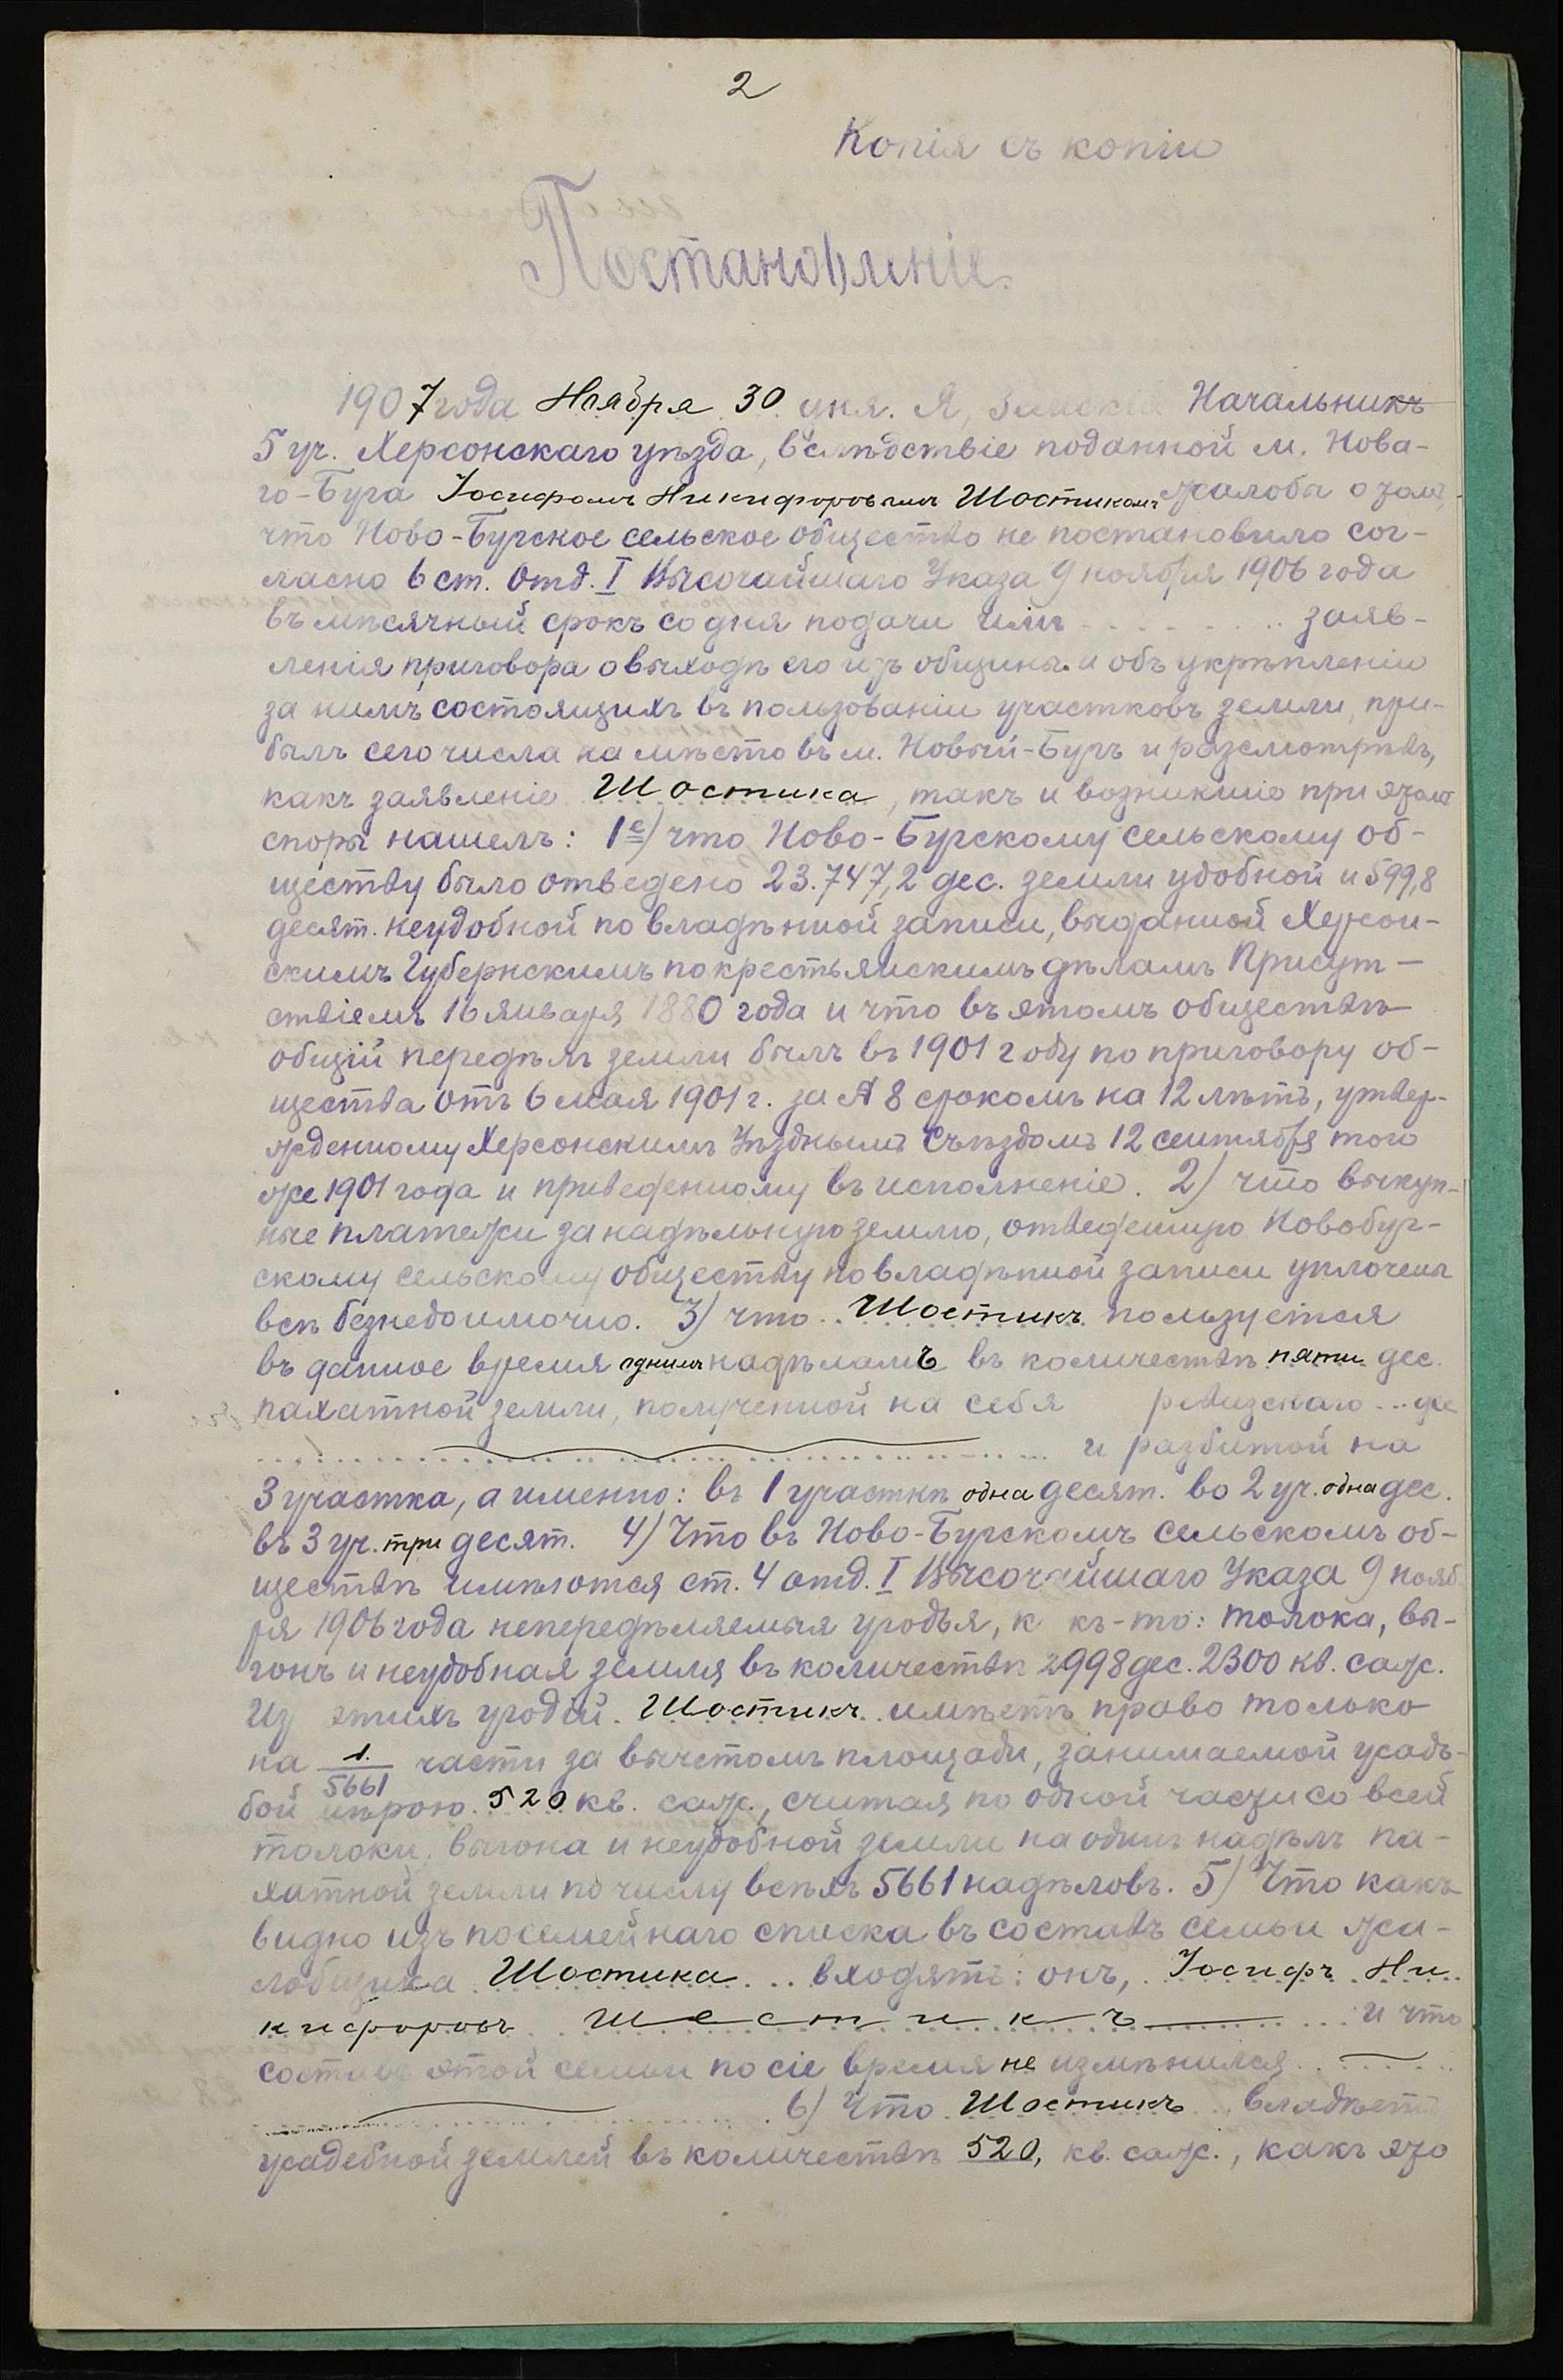 2
Копія съ копіи
Постановленіе.
1907 года Ноября 30 дня. Я, Земскій Начальникъ
5 уч. Херсонскаго уѣзда, вслѣдствіе поданной м. Нова-
го-Буга Іосифомъ Никифоровымъ Шостикомъ жалобы о томъ,
что Ново-Бугское сельское общество не постановило сог-
ласно 6 ст. Отд. I Высочайшаго Указа 9 ноября 1906 года
въ мѣсячный срокъ со дня подачи имъ заяв-
ленія приговора о выходѣ его изъ общины и объ укрѣпленіи
за нимъ состоящихъ въ пользованіи участковъ земли, при-
былъ сего числа на мѣсто въ м. Новый-Бугъ и разсмотрѣвъ,
какъ заявленіе Шостика, такъ и возникшіе при этомъ
споры нашелъ: 1е) что Ново-Бугскому сельскому об-
ществу было отведено 23.747,2 дес. земли удобной и 599,8
десят. неудобной по владѣнной записи, выданной Херсон-
скимъ Губернскимъ по крестьянскимъ дѣламъ Присут-
ствіемъ 16 января 1880 года и что въ этомъ обществѣ
общій передѣлъ земли былъ въ 1901 году по приговору об-
щества отъ 6 мая 1901 г. за № 8 срокомъ на 12 лѣтъ, утвер-
жденному Херсонскимъ Уѣзднымъ Съѣздомъ 12 сентября того
же 1901 года и приведенному въ исполненіе. 2) что выкуп-
ные платежи за надѣльную землю, отведенную Новобуг-
скому сельскому обществу по владѣнной записи уплочены
всѣ безнедоимочно. 3) что Шостикъ пользуется
въ данное время однимъ надѣломъ въ количествѣ пяти дес.
пахатной земли, полученной на себя ревизскаго
и разбитой на
3 участка, а именно: въ 1 участкѣ одна десят. во 2 уч. одна дес.
въ 3 уч. три десят. 4) Что въ Ново-Бугскомъ сельскомъ об-
ществѣ имѣются ст. 4 отд. I Высочайшаго Указа 9 нояб
ря 1906 года непередѣляемыя угодья, к къ-то: толока, вы-
гонъ и неудобная земля въ количествѣ 2998 дес. 2300 кв. саж.
Из этихъ угодій Шостикъ имѣетъ право только
на 1/5661 части за вычетомъ площади, занимаемой усадь-
бой мѣрою 520 кв. саж., считая по одной части со всей
толоки, выгона и неудобной земли на одинъ надѣлъ па-
хатной земли по числу всѣхъ 5661 надѣловъ. 5) Что какъ
видно изъ посемейнаго списка въ составъ семьи жа-
лобщика Шостика входятъ: онъ, Іосифъ Ни
кифоровъ Шестикъ и что
составъ этой семьи по сіе время не измѣнился
6) Что Шостикъ владѣетъ
усадебной землей въ количествѣ 520, кв. саж., какъ это